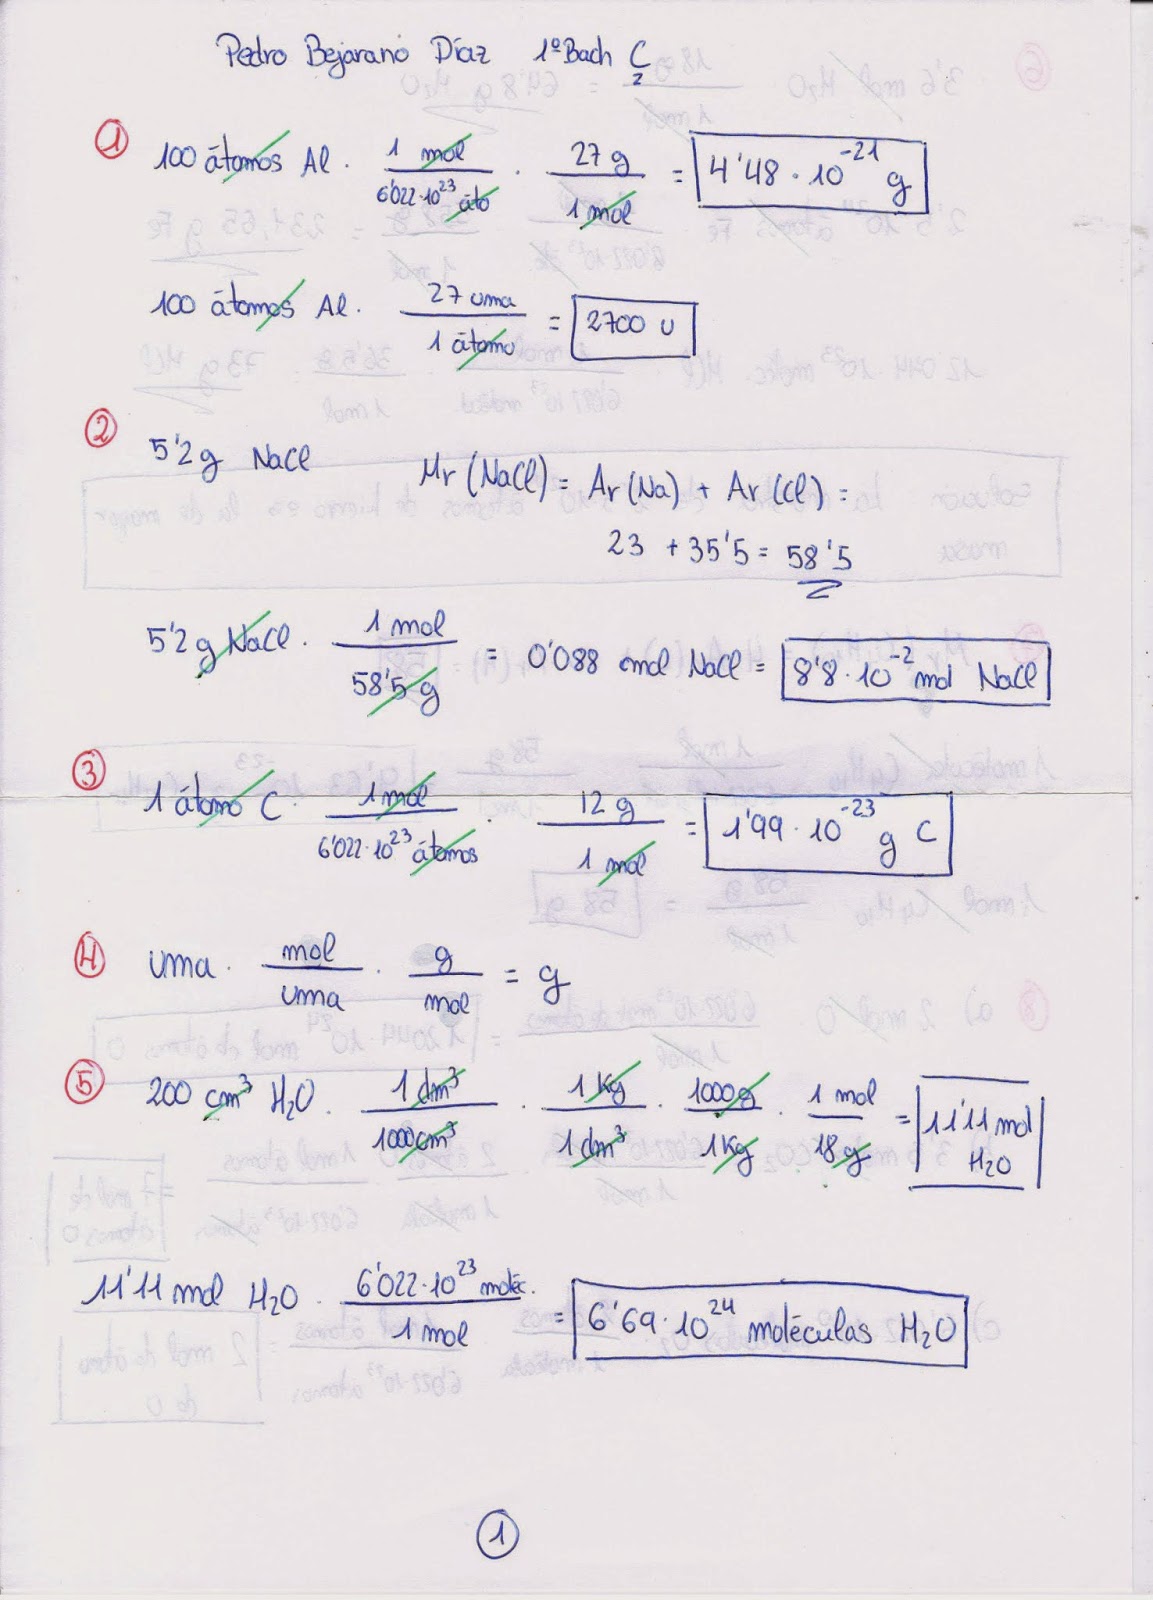 Pedro Bejarano Díaz 1ºBach C
1 100 átomos Al · 1 mol / 6'022·10²³ áto · 27 g / 1 mol = 4'48 · 10⁻²¹ g
100 átomos Al · 27 uma / 1 átomo = 2700 u
2 5'2 g NaCl Mr (NaCl) = Ar (Na) + Ar (Cl) =
23 + 35'5 = 58'5
5'2 g NaCl · 1 mol / 58'5 g = 0'088 mol NaCl = 8'8 · 10⁻² mol NaCl
3 1 átomo C 1 mol / 6'022·10²³ átomos · 12 g / 1 mol = 1'99 · 10⁻²³ g C
4 uma · mol / uma · g / mol = g
5 200 cm³ H₂O · 1 dm³ / 1000 cm³ · 1 Kg / 1 dm³ · 1000 g / 1 Kg · 1 mol / 18 g = 11'11 mol H₂O
11'11 mol H₂O · 6'022·10²³ moléc. / 1 mol = 6'69 · 10²⁴ moléculas H₂O
1